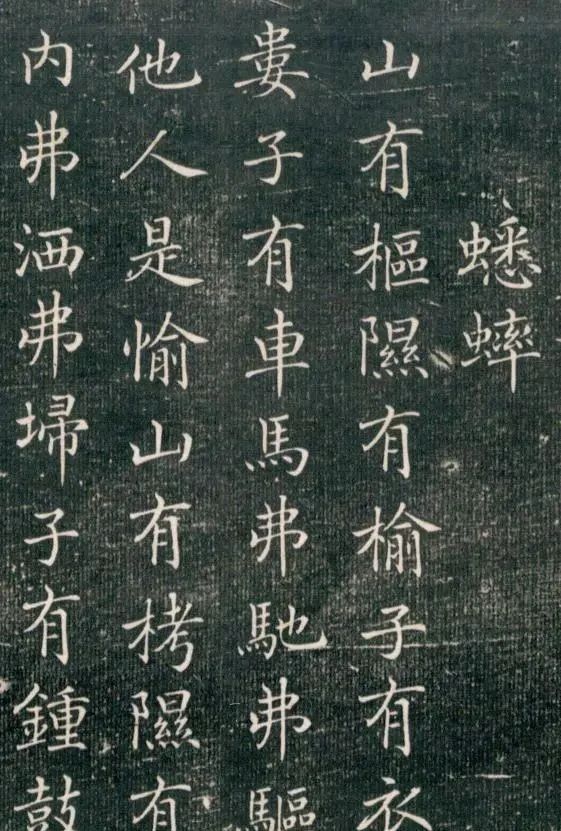 蟋蟀
山有樞隰有榆子有衣
婁子有車馬弗馳弗驅
他人是愉山有栲隰有
内弗洒弗埽子有鍾鼓